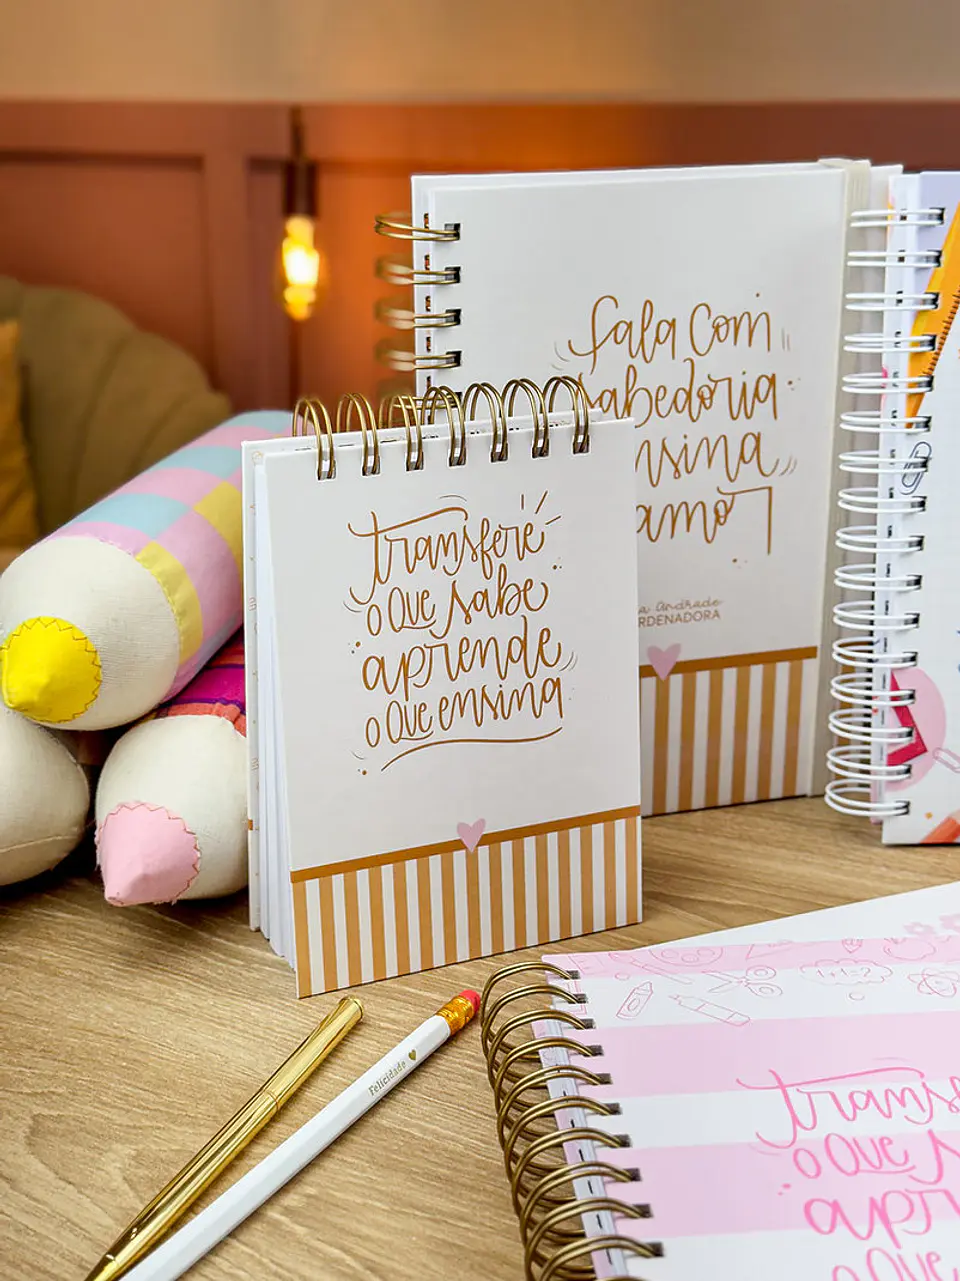 Fala com
sabedoria
nsina
amor
a Andrade
RDENADORA
transfere
o que sabe
aprende
o que ensina
Felicidade
1+1=2
transf
o que
apr
o que